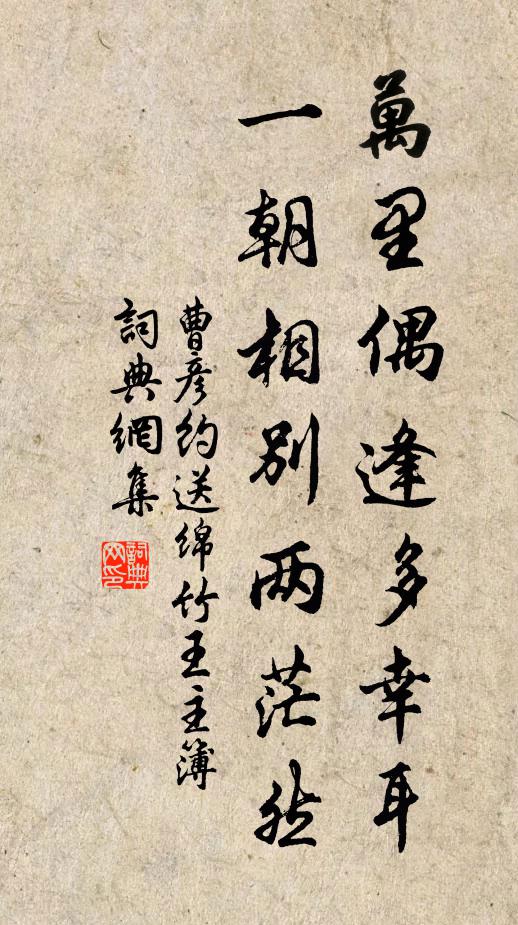 萬里偶逢多幸耳
一朝相別两茫然
曹彦約送綿竹王主簿
詞典網集
詞典
网印